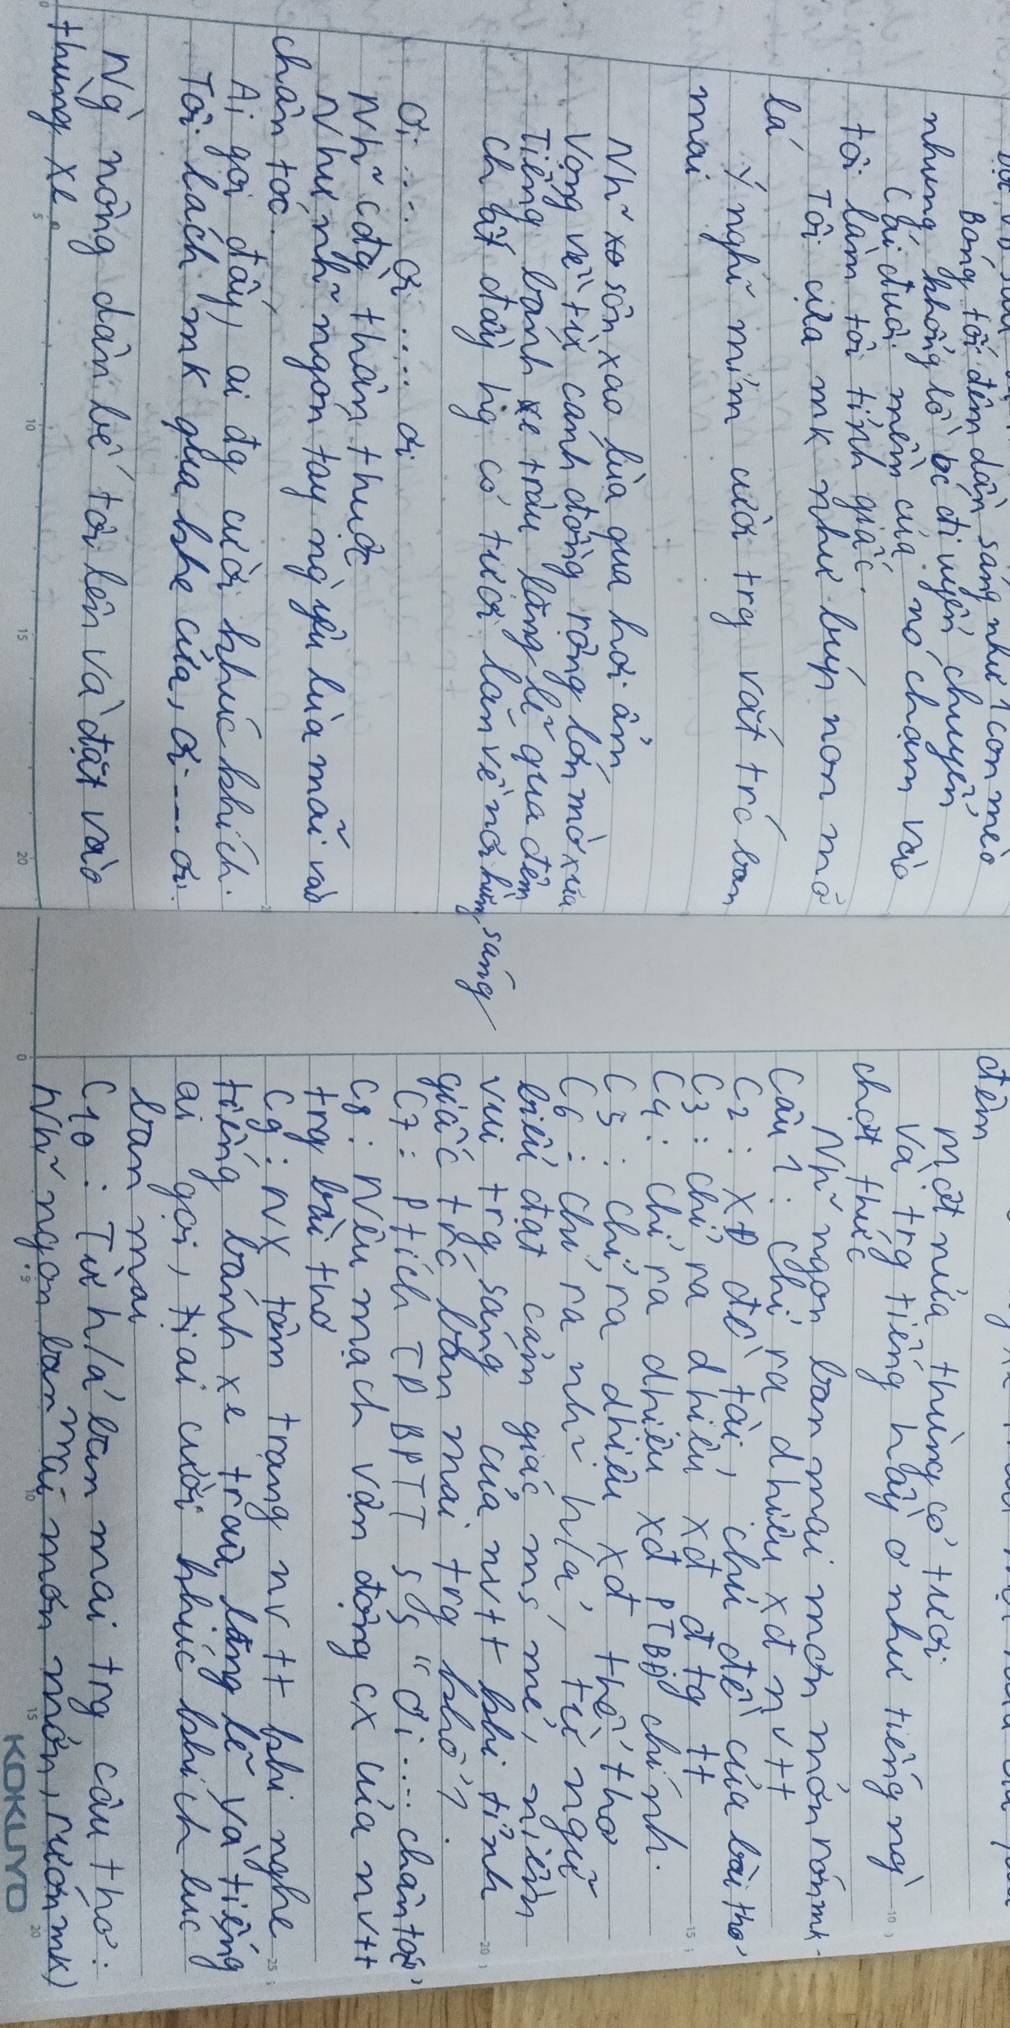 Bóng tối đêm dần sáng như 1 con mèo
nhung khổng lồ bc đi uyển chuyển
Cái đuôi mềm của nó chạm vào
tôi làm tôi tỉnh giấc.
Tôi cựa mk như búp non mở
lá
Ý nghĩ mỉm cười trg vắt trc ban
mai
Nh~ xô sôn xao lùa qua hơi ấm
Vọng về từ cánh đồng rộng lớn mờ xa
Tiếng bánh xe trâu lặng lẽ qua đêm
Ch bắt đầy hg cỏ tươi lan về nơi hừng sáng
Ơi.... ơi.... ơi
Nh~ cđg thân thuộc
Như nh~ ngón tay ng yêu lùa mãi vào
chân tóc.
Ai gọi đấy, ai đg cười khúc khích.
Tôi lách mk qua khe cửa, ơi....ơi.
Ng nông dân bế tôi lên và đặt vào
thùng xe
đêm
Một nửa thùng cỏ tươi.
Và trg tiếng hầy ơ như tiếng ng
chợt thức
Nh~ ngọn ban mai mơn mởn rướn mk.
Câu 1: Chỉ ra dhiệu xđ nv tt
C2: XĐ đề tài, chủ đề của bài thơ
C3: chỉ ra dhiệu xđ đtg tt
C4: chỉ ra dhiệu xđ PTBĐ chính.
C5: chỉ ra dhiệu xđ thể thơ
C6: chỉ ra nh~ h/a', từ ngữ
biểu đạt cảm giác ms mẻ, niềm
vui trg sáng của nvtt khi tỉnh
giấc trc ban mai trg khổ 1.
C7: Ptích TD BPTT ss "ơi.... chân tóc"
C8: Nêu mạch vận động cx của nvtt
trg bài thơ
C9: NX tâm trạng nvtt khi nghe
tiếng bánh xe trâu lặng lẽ và tiếng
ai gọi, t' ai cười khúc khích lúc
ban mai
C10: Từ h/a' ban mai trg câu thơ:
Nh~ ngọn ban mai mơn mởn, rướn mk)
KOKUYO